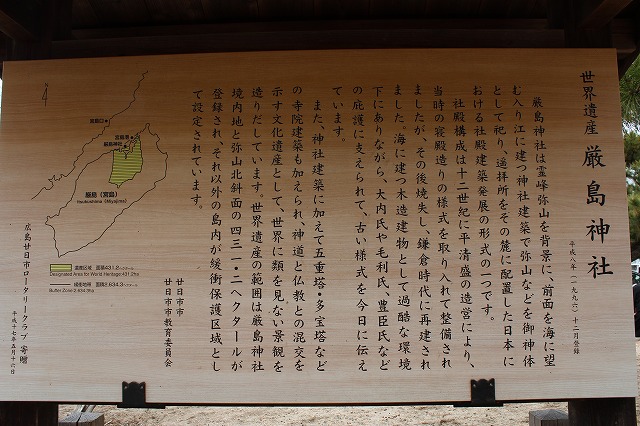 世界遺産 厳島神社
平成八年(一九九六)十二月登録
厳島神社は霊峰弥山を背景に、前面を海に望
む入り江に建つ神社建築で弥山などを御神体
として祀り、遥拝所をその麓に配置した日本に
おける社殿建築発展の形式の一つです。
社殿構成は十二世紀に平清盛の造営により、
当時の寝殿造りの様式を取り入れて整備され
ましたが、その後焼失し、鎌倉時代に再建され
ました。海に建つ木造建物として過酷な環境
下にありながら、大内氏や毛利氏、豊臣氏など
の庇護に支えられて、古い様式を今日に伝え
ています。
また、神社建築に加えて五重塔・多宝塔など
の寺院建築も加えられ、神道と仏教との混交を
示す文化遺産として、世界に類を見ない景観を
造りだしています。世界遺産の範囲は厳島神社
境内地と弥山北斜面の四三一・二ヘクタールが
登録され、それ以外の島内が緩衝保護区域とし
て設定されています。
廿日市市
廿日市市教育委員会
宮島口
宮島港
厳島神社
厳島(宮島)
Itsukushima (Miyajima)
登録区域 面積431.2ヘクタール
Designated Area for World Heritage:431.2ha
緩衝地帯 面積2,634.3ヘクタール
Buffer Zone:2,634.3ha
広島廿日市ロータリークラブ 寄贈
平成十七年五月十六日